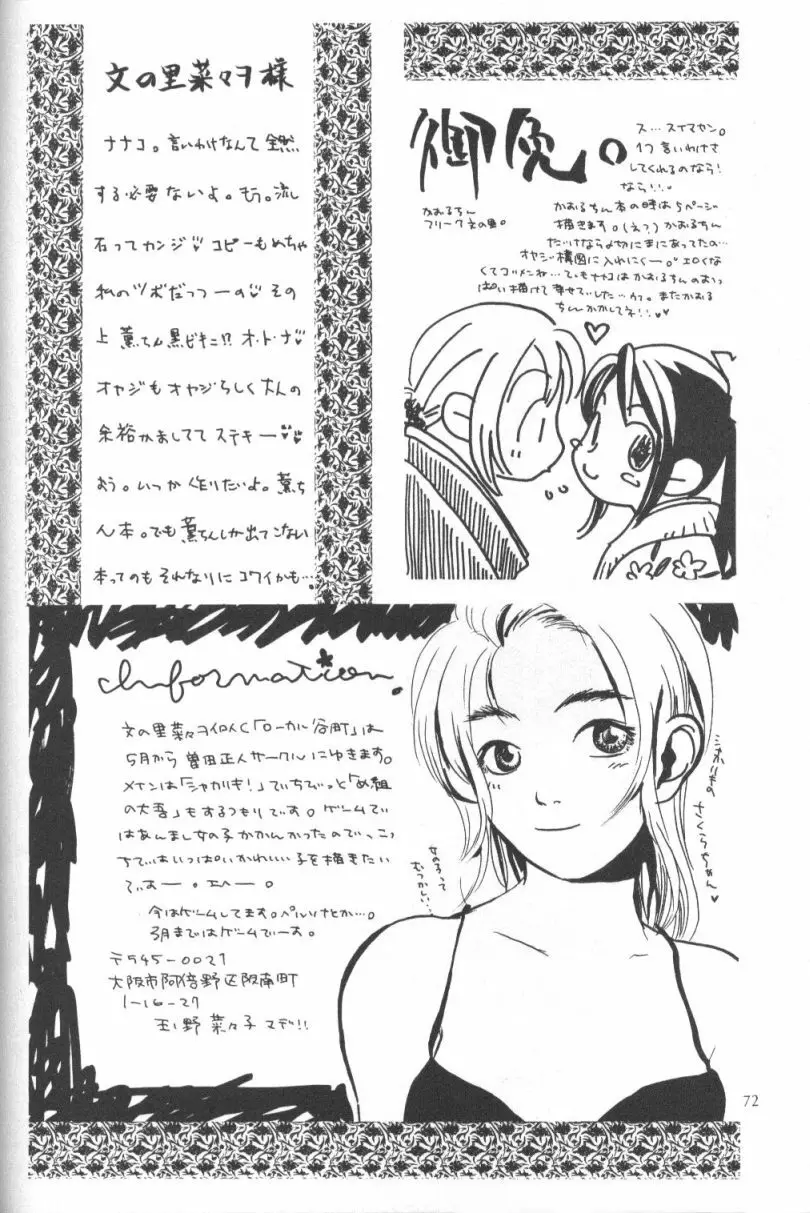 文の里菜々ヲ様
ナナコ。言いわけなんて全然
する必要ないよ。もう。流し
石ってカンジ♡コピーもめちゃ
私のツボだっつーの♡その
上薫ちん黒ビキニ!?オ・ト・ナ♡
オヤジもオヤジらしく大人の
余裕かましててステキー♡♡
おう。いつか作りたいよ。薫ち
ん本。でも薫ちんしか出てこない
本ってのもそれなりにコワイかも…。
御免。
かおるちん
フリーク文の里。
ス…スイマセン。
1つ言いわけさ
してくれるのなら!
なら!!。
かおるちん本の時は5ページ
描きます。(え?)かおるちん
だけなら〆切にまにあってたの…
オヤジ構図に入れにくー。エロくな
くてゴメンね…でもナナコはかおるちんのおっ
ぱい描けて幸せでした…ウフ。またかおる
ちんかかしてネ!!♡
Information.
文の里菜々ヲイロイく「ローカル谷町」は
5月から曽田正人サークルにゆきます。
メインは「シャカリキ!」でちびっと「め組
の大吾」もするつもりです。ゲームで
はあんまし女の子かかんかったので、こっ
ちではいっぱいかわいい子を描きたい
でぃあー。エヘー。
今はゲームしてます。ペルソナとか…。
3月まではゲームでーす。
〒545-0021
大阪市阿倍野区阪南町
1-16-27
玉野菜々子マデ!!
女の子って
むつかしい…
シャカリキの
さくらちゃん♡
72